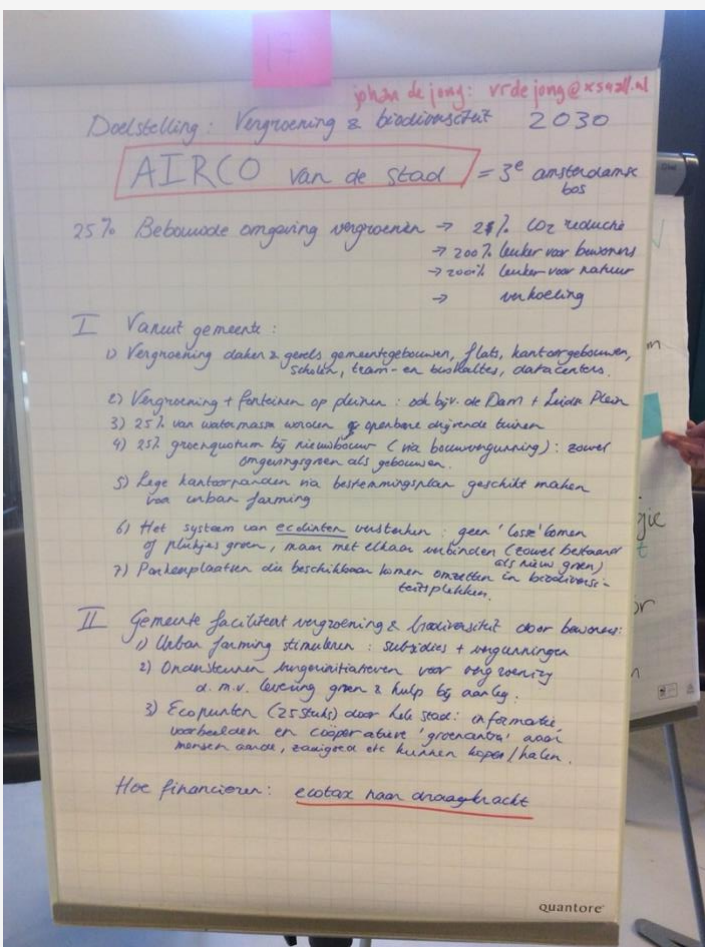 johan de jong: vrdejong@xs4all.nl
Doelstelling: Vergroening & biodiversiteit 2030
AIRCO van de stad = 3e amsterdamse
bos
25% Bebouwde omgeving vergroenen → 25% CO2 reductie
→ 200% leuker voor bewoners
→ 200% leuker voor natuur
→ verkoeling
I Vanuit gemeente:
1) Vergroening daken & gevels gemeentegebouwen, flats, kantoorgebouwen,
scholen, tram- en bushaltes, datacenters.
2) Vergroening + fonteinen op pleinen: ook bijv. de Dam + Leidse Plein
3) 25% van watermassa worden openbare drijvende tuinen
4) 25% groenquotum bij nieuwbouw (via bouwvergunning): zowel
omgevingsgroen als gebouwen.
5) Lege kantoorpanden via bestemmingsplan geschikt maken
voor urban farming
6) Het systeem van ecolinten versterken: geen 'losse' bomen
of plukjes groen, maar met elkaar verbinden (zowel bestaand
als nieuw groen)
7) Parkeerplaatsen die beschikbaar komen omzetten in biodiversi-
teitsplekken.
II Gemeente faciliteert vergroening & biodiversiteit door bewoners:
1) Urban farming stimuleren: subsidies + vergunningen
2) Ondersteunen burgerinitiatieven voor vergroening
d.m.v. levering groen & hulp bij aanleg.
3) Ecopunten (25 stuks) door hele stad: informatie,
voorbeelden en coöperatieve 'groencentra' waar
mensen aarde, zaaigoed etc kunnen kopen/halen.
Hoe financieren: ecotax naar draagkracht
quantore